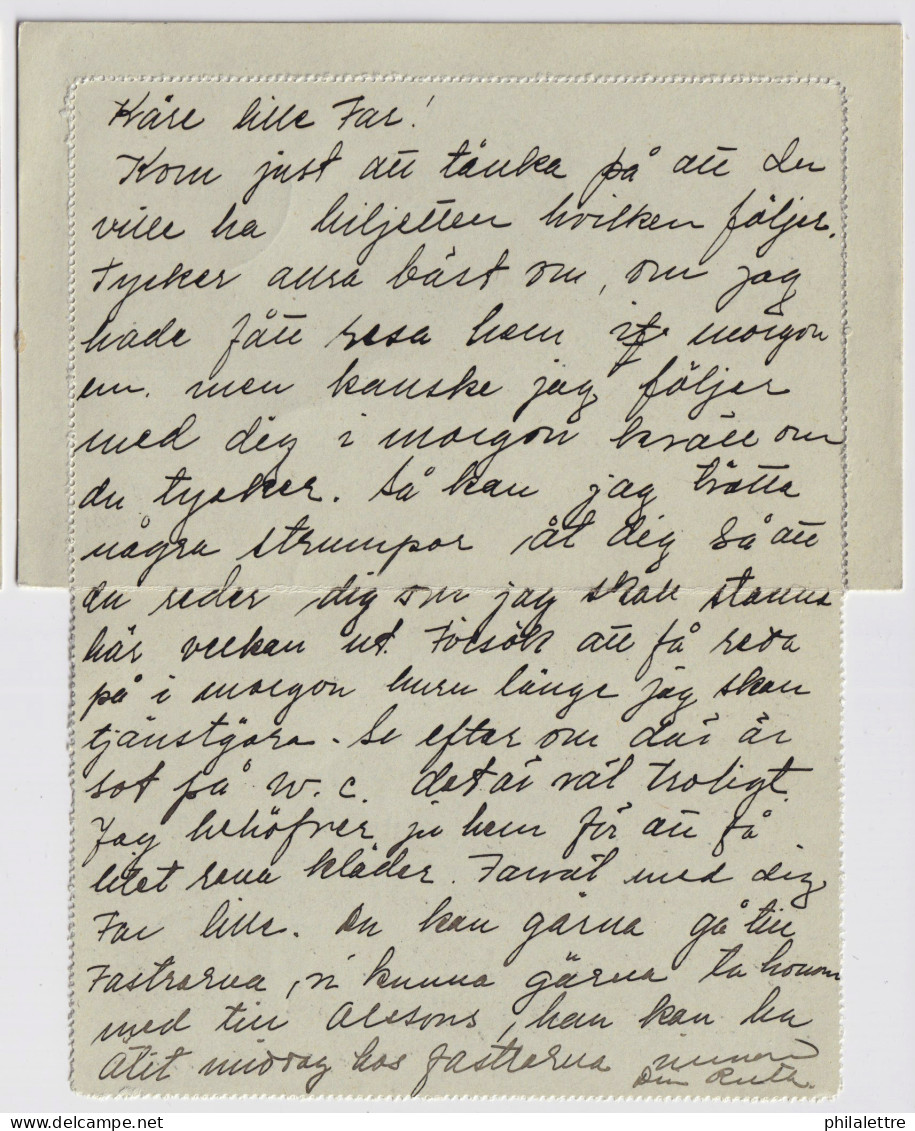 Käre lille Far!
Kom just att tänka på att du
ville ha biljetten hvilken följer.
Tycker annra bäst om, om jag
hade fått resa hem i morgon
em. men kanske jag följer
med dig i morgon kväll om
du tycker. Så kan jag tvätta
några strumpor åt dig så att
du reder dig om jag skall stanna
här veckan ut. Försök att få reda
på i morgon huru länge jag skall
tjänstgöra. Se efter om där är
sot på w.c. det är väl troligt.
Jag behöfver ju hem för att få
litet rena kläder. Farväl med dig
Far lille. Du kan gärna gå till
Fastrarna, vi kunna gärna ta honom
med till Olssons, han kan ha
ätit middag hos fastrarna
Din Ruth.
philalettre